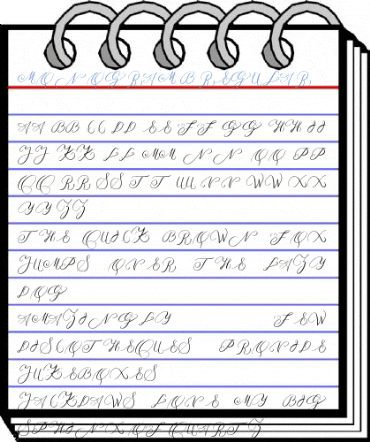 MONOGRAM B REGULAR,
AA BB CC DD EE FF GG HH II
JJ KK LL MM NN OO PP
QQ RR SS TT UU VV WW XX
YY ZZ
THE QUICK BROWN FOX
JUMPS OVER THE LAZY
DOG
AMAZINGLY FEW
DISCOTHEQUES PROVIDE
JUKEBOXES
JACKDAWS LOVE MY BIG
SPHINX OF QUARTZ